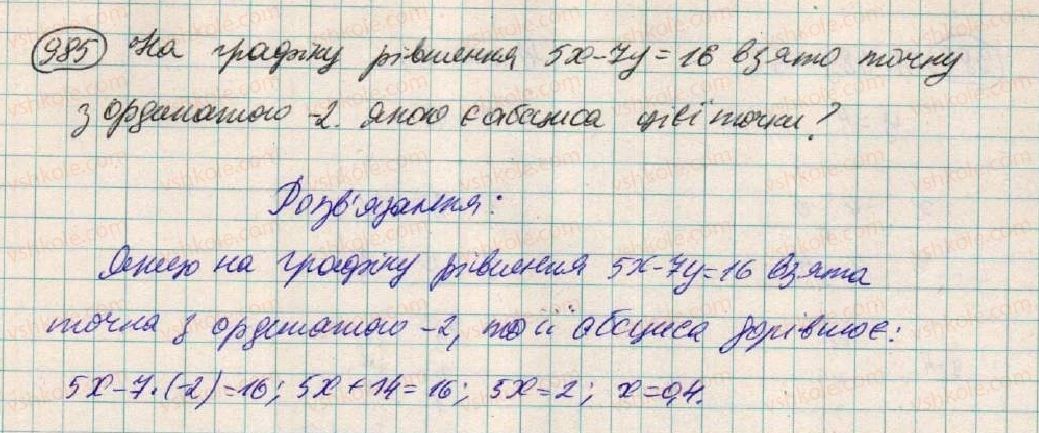 985 На графіку рівняння 5x-7y=16 взято точку
з ординатою -2. Якою є абсциса цієї точки?
Розв'язання:
Якщо на графіку рівняння 5x-7y=16 взята
точка з ординатою -2, то її абсциса дорівнює:
5x-7·(-2)=16; 5x+14=16; 5x=2; x=0,4.